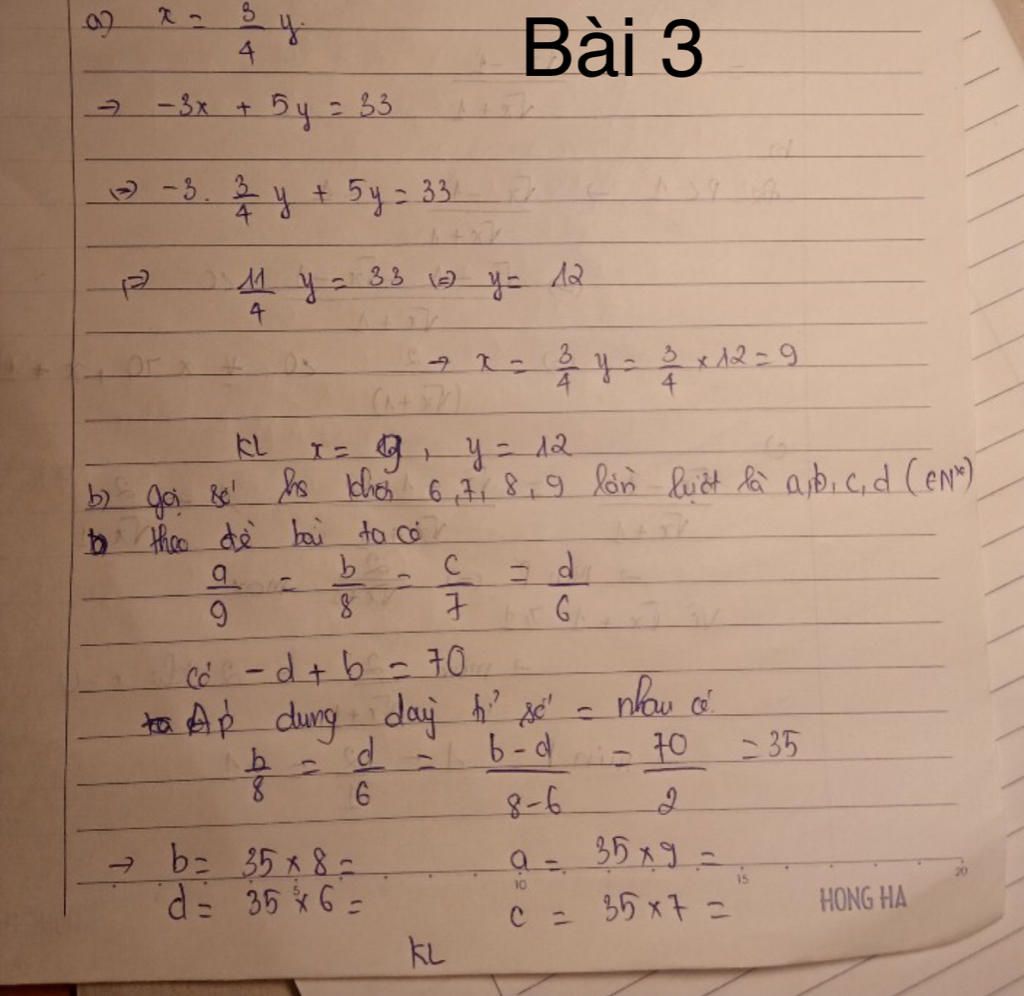 Bài 3
a) x = 3/4 y.
→ -3x + 5y = 33
⇔ -3. 3/4 y + 5y = 33
⇔ 11/4 y = 33 ⇔ y = 12
→ x = 3/4 y = 3/4 × 12 = 9
KL x = 9, y = 12
b) gọi số hs khối 6, 7, 8, 9 lần lượt là a, b, c, d (∈ N*)
theo đề bài ta có
a/9 = b/8 = c/7 = d/6
có - d + b = 70
Áp dung dãy tỉ số = nhau có
b/8 = d/6 = b - d/8 - 6 = 70/2 = 35
→ b = 35 × 8 = a = 35 × 9 =
5 10 15 20
d = 35 × 6 = c = 35 × 7 = HONG HA
KL